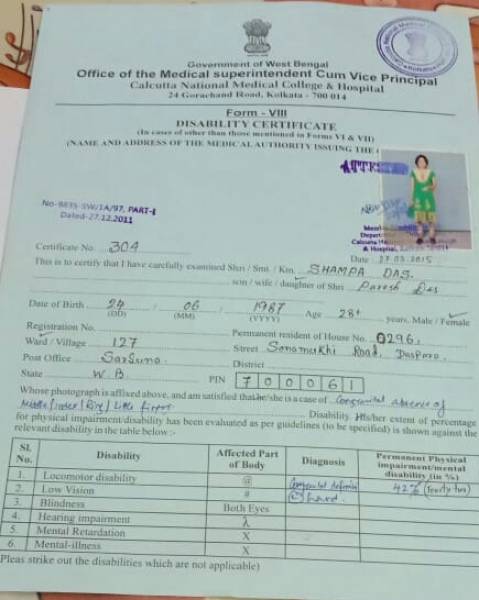 Government of West Bengal
Office of the Medical superintendent Cum Vice Principal
Calcutta National Medical College & Hospital
24 Gorachand Road, Kolkata - 700 014
Form - VIII
DISABILITY CERTIFICATE
(In cases of other than those mentioned in Forms VI & VII)
(NAME AND ADDRESS OF THE MEDICAL AUTHORITY ISSUING THE
No-9835-SW/1A/97, PART-I
Dated-27.12.2011
Certificate No. 304
Date 27.03.2015
This is to certify that I have carefully examined Shri / Smt. / Km. SHAMPA DAS.
son / wife / daughter of Shri Paresh Das
Date of Birth 24 / 06 / 1987 Age 28+ years, Male / Female
(DD) (MM) (YYYY)
Registration No. Permanent resident of House No. 0296,
Ward / Village 127 Street Sonamukhi Road, Daspara.
Post Office Sarsuna. District
State W.B PIN 700061
Whose photograph is affixed above, and am satisfied that he/she is a case of Congenital absence of
Middle / index / Ring / Little fingers Disability. His/her extent of percentage
for physical impairment/disability has been evaluated as per guidelines (to be specified) is shown against the
relevant disability in the table below :-
Sl. No. Disability Affected Part of Body Diagnosis Permanent Physical impairment/mental disability (in %)
1. Locomotor disability @ Congenital (L) hand. 42% (Fourty two)
2. Low Vision #
3. Blindness Both Eyes
4. Hearing impairment
5. Mental Retardation X
6. Mental-illness X
(Pleas strike out the disabilities which are not applicable)